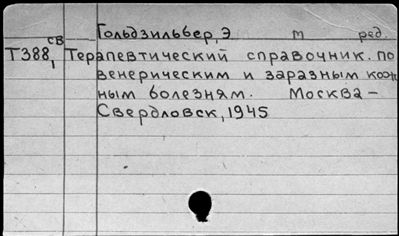 Гольдзильбер, Э м ред.
св
Т388, Терапевтический справочник. по
венерическим и заразным кож
ным болезням. Москва –
Свердловск, 1945